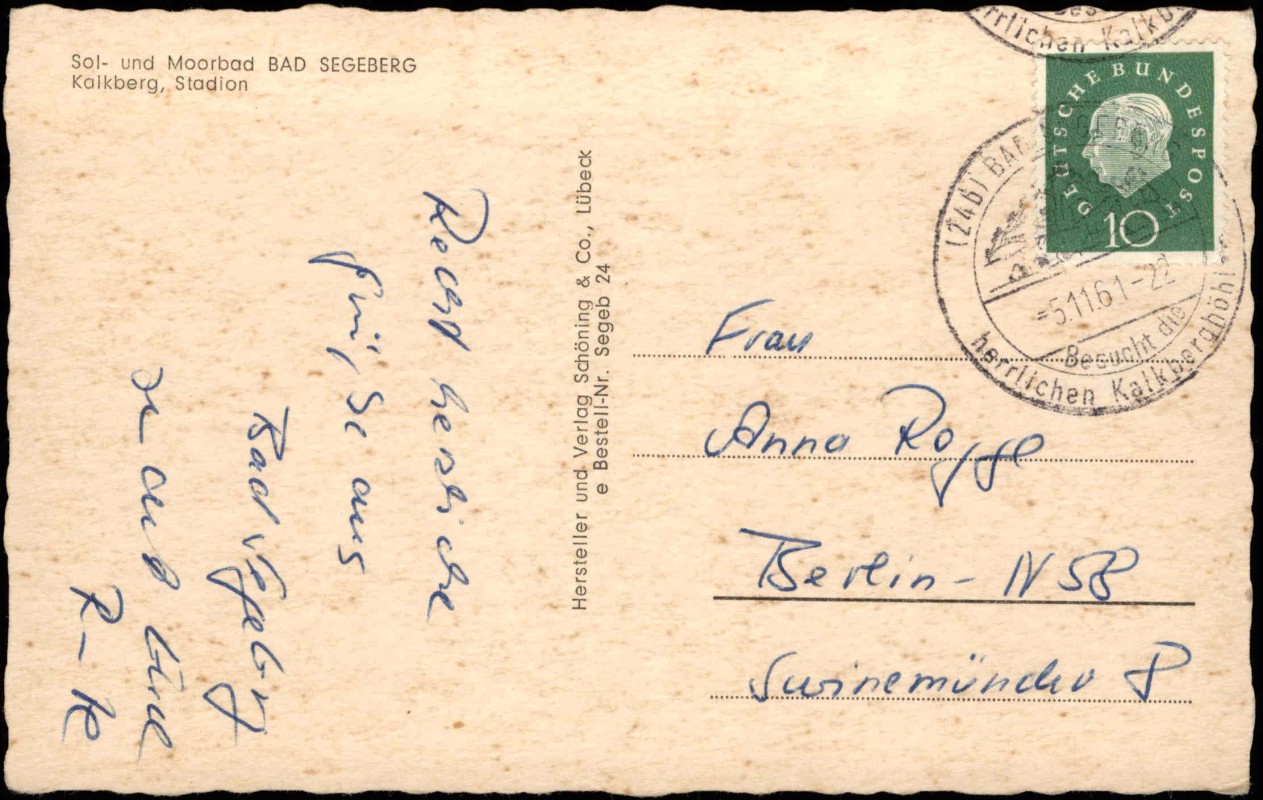 Sol- und Moorbad BAD SEGEBERG
Kalkberg, Stadion
Recht herzliche
Grüße aus
Bad Segeberg
R-
Hersteller und Verlag Schöning & Co., Lübeck
e Bestell-Nr. Segeb 24
rrlichen Kalkb
DEUTSCHE BUNDESPOST
10
(24b) BAD
-5.11.61-22
Besucht die
herrlichen Kalkberghöhl
Frau
Anna Rogge
Berlin - N 58
Swinemünder 8